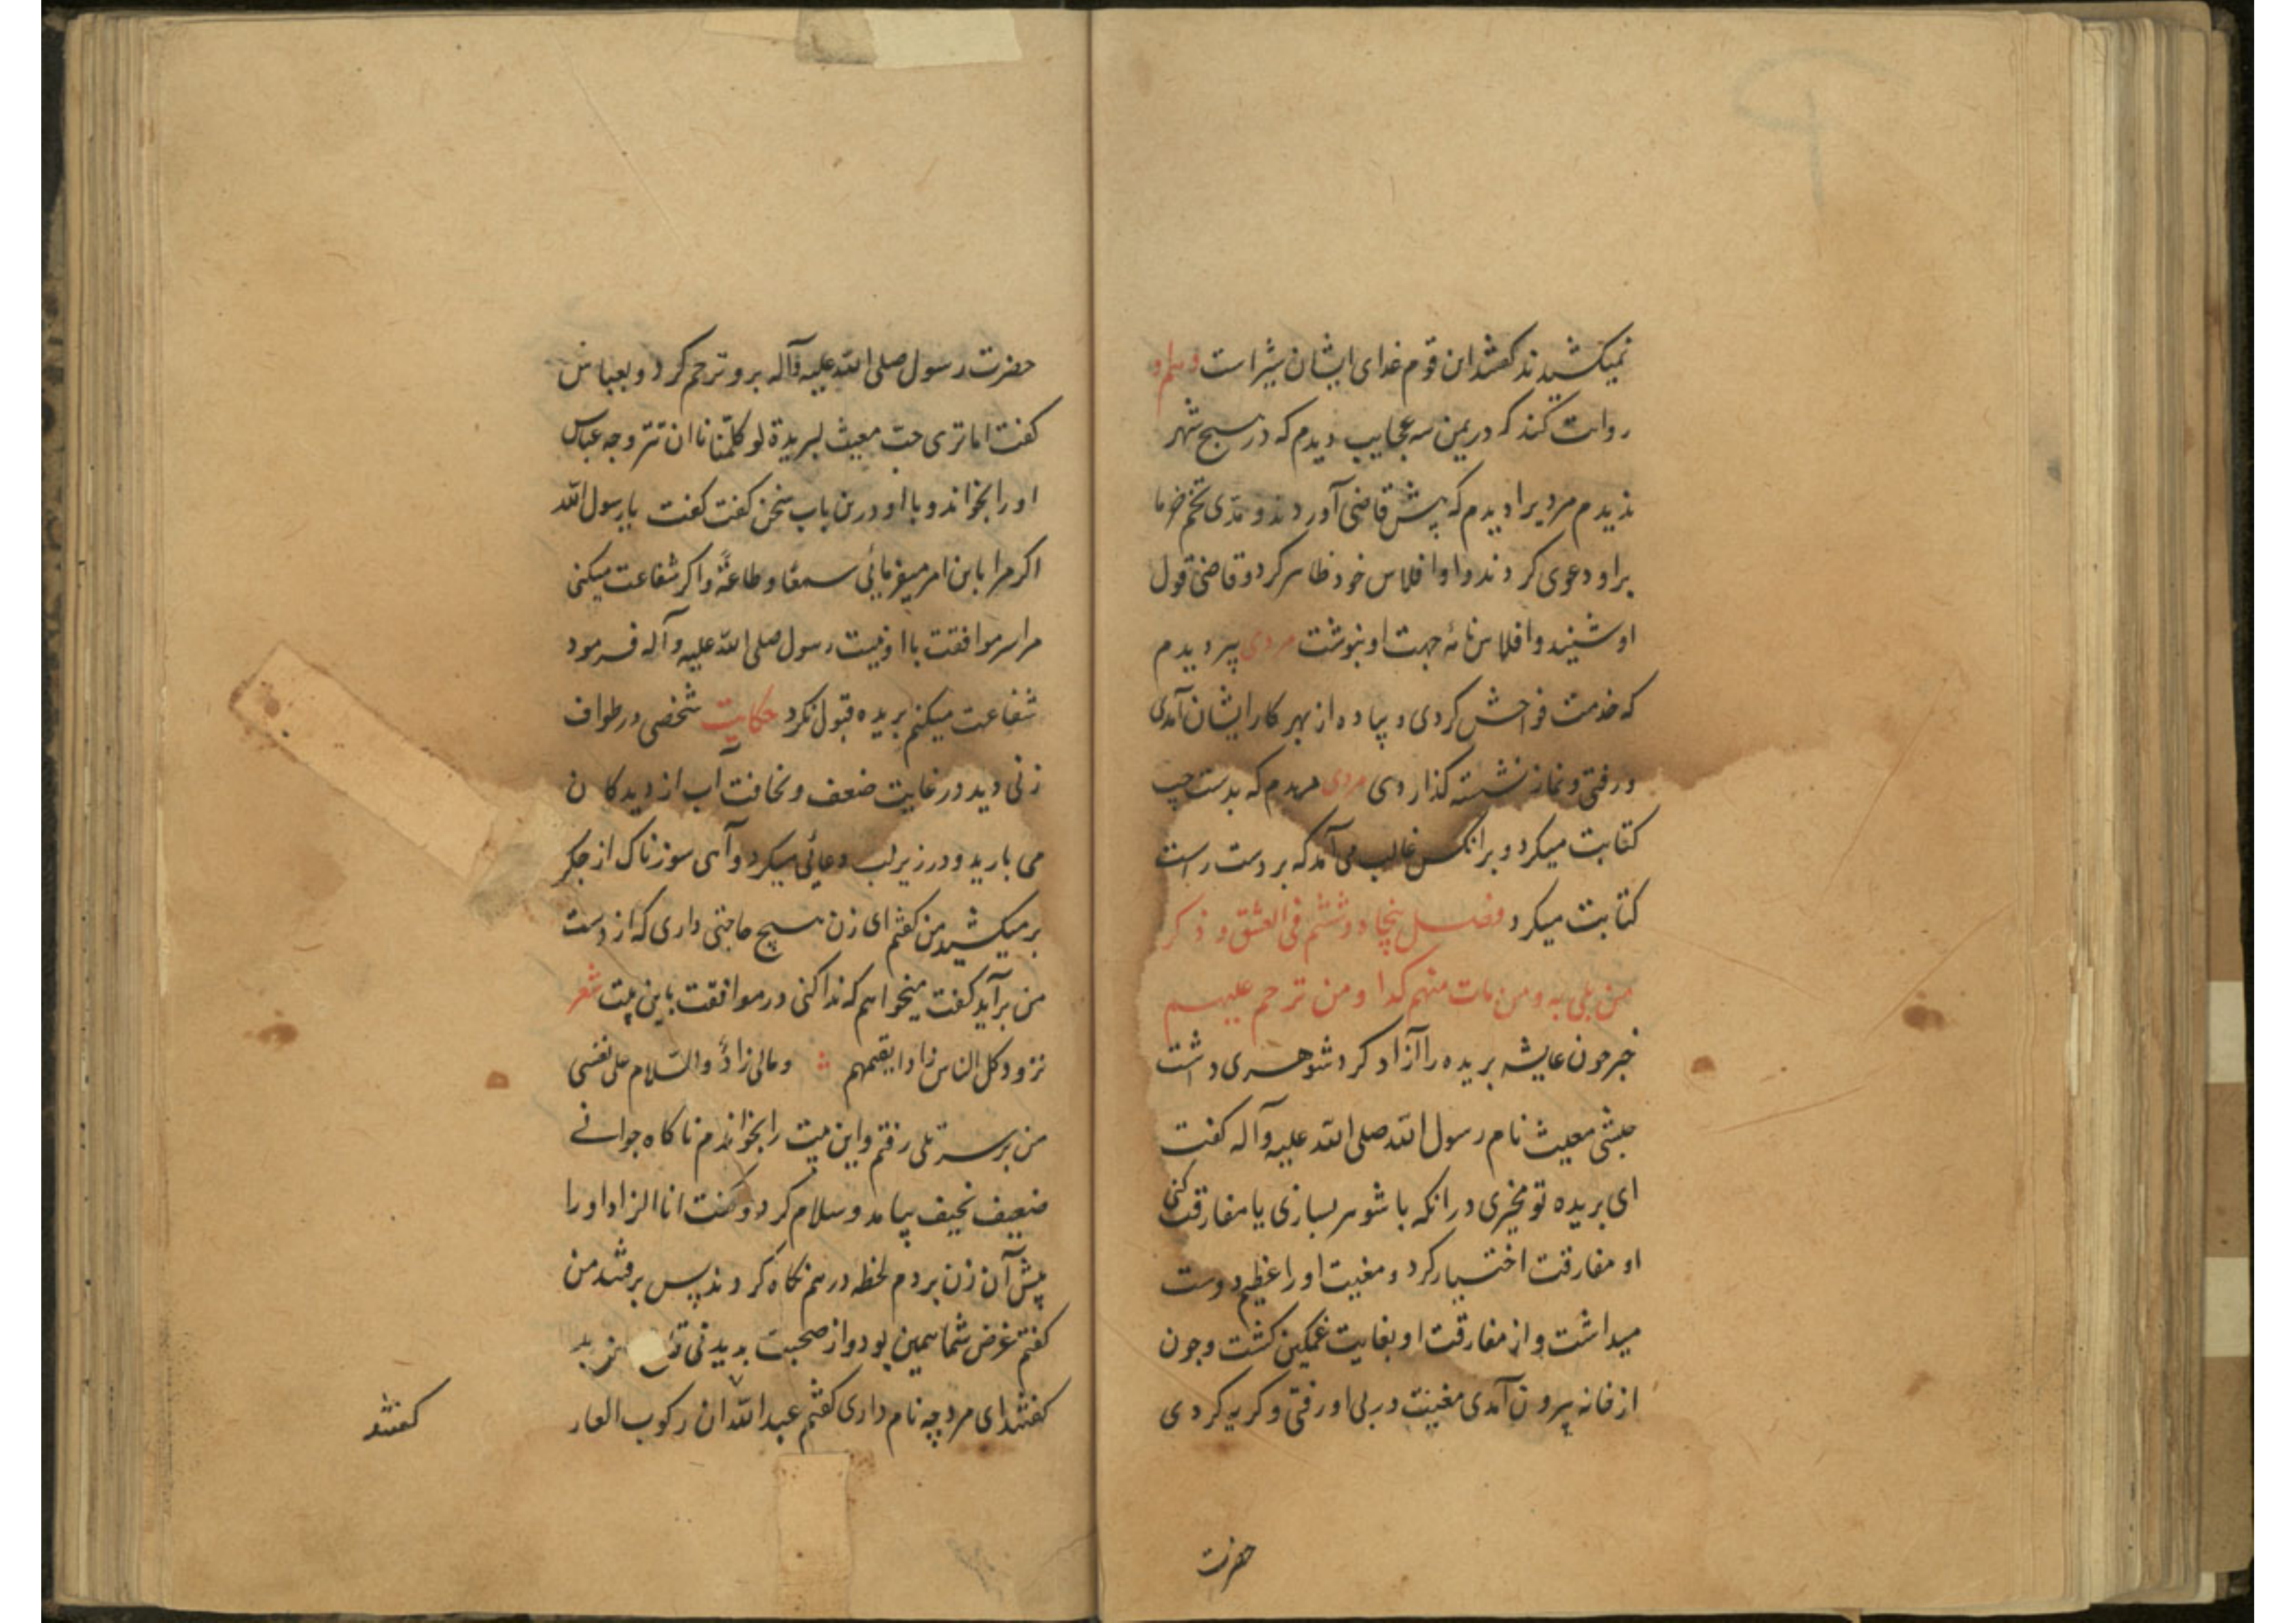 نمیکشیدند کفتند این قوم غدای ایشان شیر است و هم او
روایت کند که در یمن سه عجایب دیدم که در هیچ شهر
ندیدم مردیرا دیدم که پیش قاضی آوردند و مدی تخم خرما
براو دعوی کردند و او افلاس خود ظاهر کرد و قاضی قول
او شنیند و افلاس نامهٔ جهت او بنوشت مردی پیر دیدم
که خدمت فواحش کردی و پیاده از بهر کار ایشان آمدی
ورفتی و نماز نشسته کذاردی مردی دیدم که بدست چپ
کتابت میکرد و بر انکس غالب می آمد که بر دست راست
کتابت میکرد فصل پنجاه و ششم فی العشق و ذکر
من بلی به و من مات منهم کمدا و من ترحم علیهم
خبر چون عایشه بریده را آزاد کرد شوهری داشت
حبشی معیث نام رسول الله صلی الله علیه وآله کفت
ای بریده تو مخیری در انکه با شوهر بسازی یا مفارقت کنی
او مفارقت اختیار کرد و مغیت او را عظیم دوست
میداشت و از مفارقت او بغایت غمکین کشت وچون
از خانه بیرون آمدی مغیث در پی او رفتی و کریه کردی
حضرت
حضرت رسول صلی الله علیه وآله برو ترحم کرد و بعباس
کفت اما تری حب معیث لبریدة لو کلمتنا ان تتزوجه عباس
او را بخواند و با او درین باب سخن کفت کفت یا رسول الله
اکر مرا باین امر میفرمایی سمعا و طاعةً و اکر شفاعت میکنی
مرا سر موافقت با او نیست رسول صلی الله علیه وآله فرمود
شفاعت میکنم بریده قبول نکرد حکایت شخصی در طواف
زنی دید در غایت ضعف و نحافت آب از دیدکان
می بارید و در زیر لب دعائی میکرد و آهی سوزناک از جکر
بر میکشید من کفتم ای زن هیچ حاجتی داری که از دست
من برآید کفت میخواهم که ندا کنی در موافقت باین بیت شعر
تزود کل الناس زادا یقیمهم و مالی زادٌ والسّلام علی نفسی
من بر سر تلی رفتم و این بیت را بخواندم ناکاه جوانے
ضعیف نحیف بیامد و سلام کرد و کفت انا الزاد او را
پیش آن زن بردم لحظه در هم نکاه کردند پس برفتند من
کفتم غرض شما همین بود و از صحبت بدیدنی
کفتند ای مرد چه نام داری کفتم عبد الله ان رکوب العار
کفتند